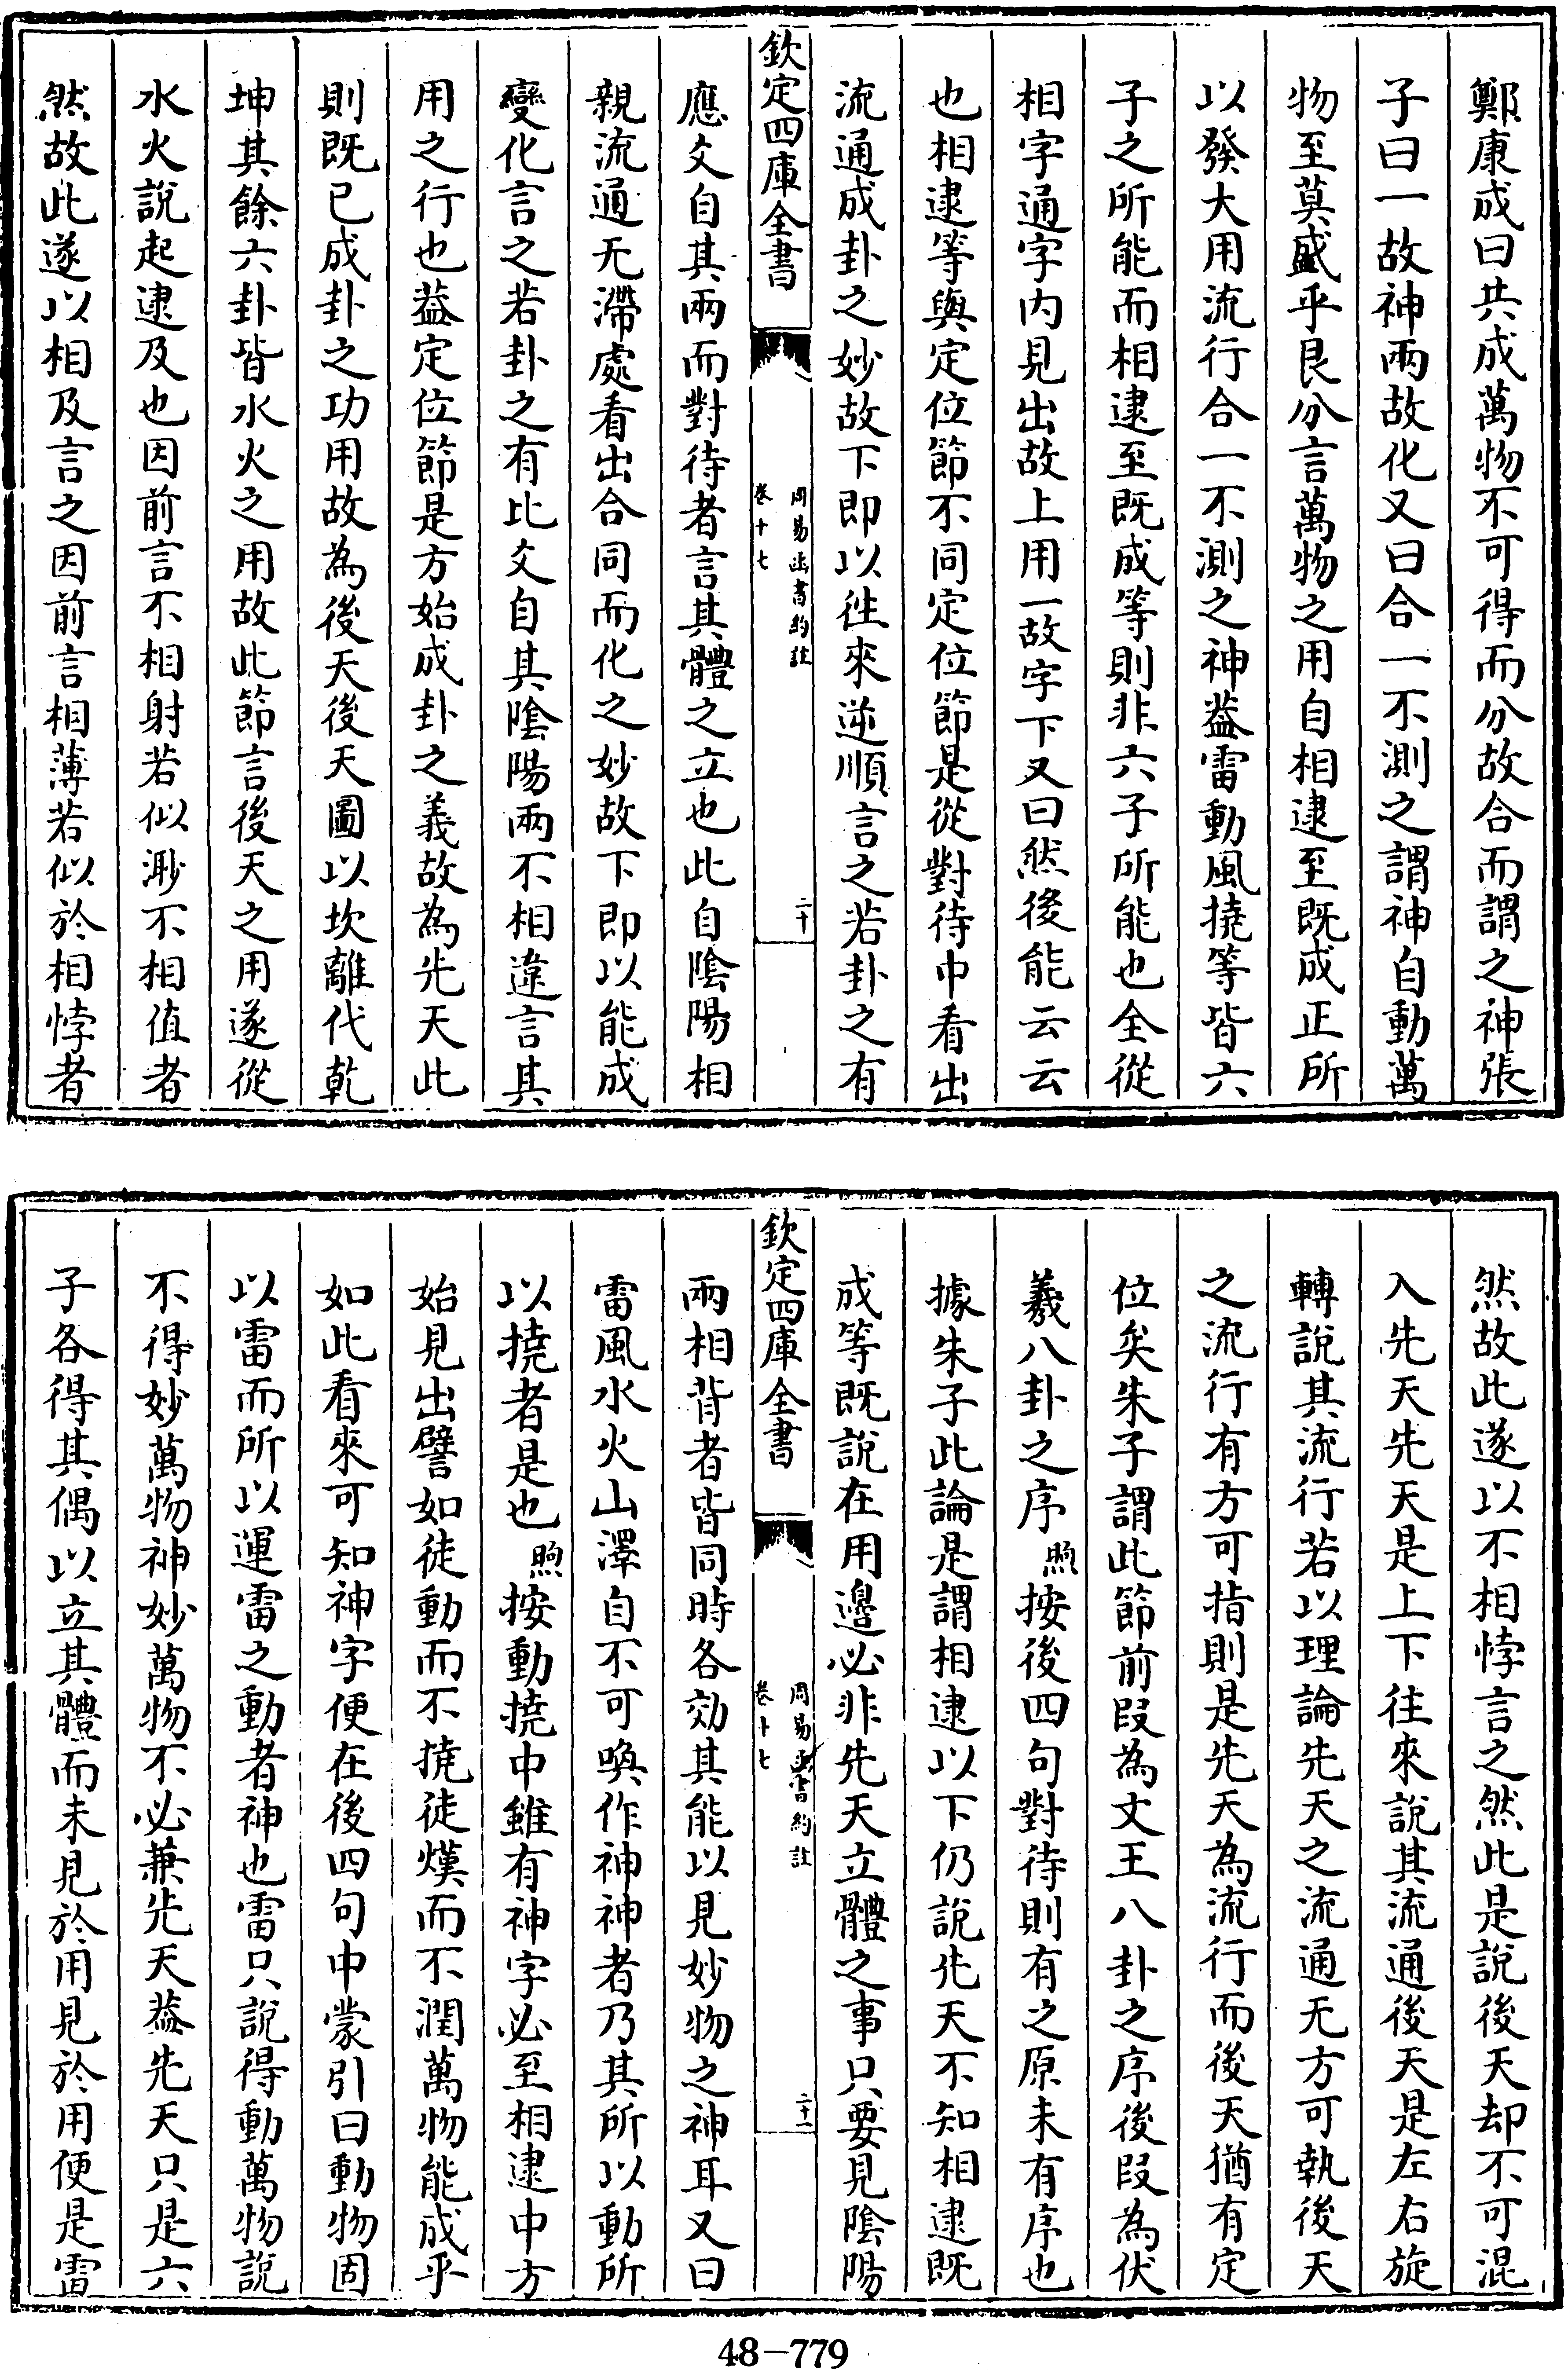 鄭康成曰共成萬物不可得而分故合而謂之神張
子曰一故神兩故化又曰合一不測之謂神自動萬
物至莫盛乎艮分言萬物之用自相逮至既成正所
以發大用流行合一不測之神葢雷動風撓等皆六
子之所能而相逮至既成等則非六子所能也全從
相字通字内見出故上用一故字下又曰然後能云云
也相逮等與定位節不同定位節是從對待中看出
流通成卦之妙故下即以徃來逆順言之若卦之有
欽定四庫全書
周易函書約註
卷十七
二十
應爻自其兩而對待者言其體之立也此自陰陽相
親流通无滯處看出合同而化之妙故下即以能成
變化言之若卦之有比爻自其陰陽兩不相違言其
用之行也葢定位節是方始成卦之義故為先天此
則既已成卦之功用故為後天後天圖以坎離代乾
坤其餘六卦皆水火之用故此節言後天之用遂從
水火說起逮及也因前言不相射若似渺不相值者
然故此遂以相及言之因前言相薄若似於相悖者
然故此遂以不相悖言之然此是說後天却不可混
入先天先天是上下往來說其流通後天是左右旋
轉說其流行若以理論先天之流通无方可執後天
之流行有方可指則是先天為流行而後天猶有定
位矣朱子謂此節前段為文王八卦之序後段為伏
羲八卦之序煦按後四句對待則有之原未有序也
據朱子此論是謂相逮以下仍說先天不知相逮既
成等既說在用邊必非先天立體之事只要見陰陽
欽定四庫全書
周易函書約註
卷十七
二十一
兩相背者皆同時各効其能以見妙物之神耳又曰
雷風水火山澤自不可喚作神神者乃其所以動所
以撓者是也煦按動撓中雖有神字必至相逮中方
始見出譬如徒動而不撓徒熯而不潤萬物能成乎
如此看來可知神字便在後四句中蒙引曰動物固
以雷而所以運雷之動者神也雷只說得動萬物說
不得妙萬物神妙萬物不必兼先天葢先天只是六
子各得其偶以立其體而未見於用見於用便是雷
48-779